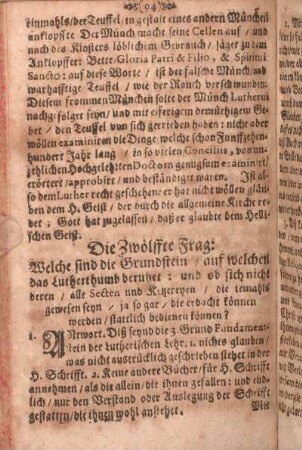 (94)
einmahls/ der Teuffel/ in gestalt eines andern München
anklopffte. Der Münch macht seine Cellen auf / und
nach des Klosters löblichem Gebrauch / säget zu dem
Anklopffer: Bette/ Gloria Patri & Filio, & Spiritui
Sancto: auf diese Worte / ist der falsche Münch/ und
warhafftige Teuffel / wie der Rauch verschwunden.
Diesem frommen München solte der Münch Lutherus
nachgefolget seyn/ und mit eiferigem demüthigem Ge-
bet / den Teuffel von sich getrieben haben: nicht aber
wöllen examiniren die Dinge welche schon Funffzehen-
hundert Jahr lang / in so vielen Concilus, von un-
zehlichen Hochgelehrten Doctorn genugsam examinirt/
erörtert/ approbirt/ und beständiget waren. Ist al-
so dem Luther recht geschehen: er hat nicht wöllen glau-
ben dem H. Geist / der durch die allgemeine Kirche re-
det; Gott hat zugelassen/ daß er glaubte dem Helli-
schen Geist.
Die Zwölffte Frag:
Welche sind die Grundstein / auf welchen
das Lutherthumb beruhet: und ob sich nicht
deren / alle Secten und Ketzereyen / die iemahls
gewesen seyn / ja so gar / die erdacht können
werden/ stattlich bedienen können?
1. Antwort. Diß seynd die 3. Grund Fundamen-
ten der Lutherischen Lehr. 1. nichts glauben/
was nicht austrücklich geschrieben stehet in der
H. Schrifft. 2. Keine andere Bücher/ für H. Schrifft
annehmen/ als die allein/ die ihnen gefallen: und end-
lich/ nur den Verstand oder Auslegung der Schrifft
gestatten/ die ihnen wohl anstehet.
Mit